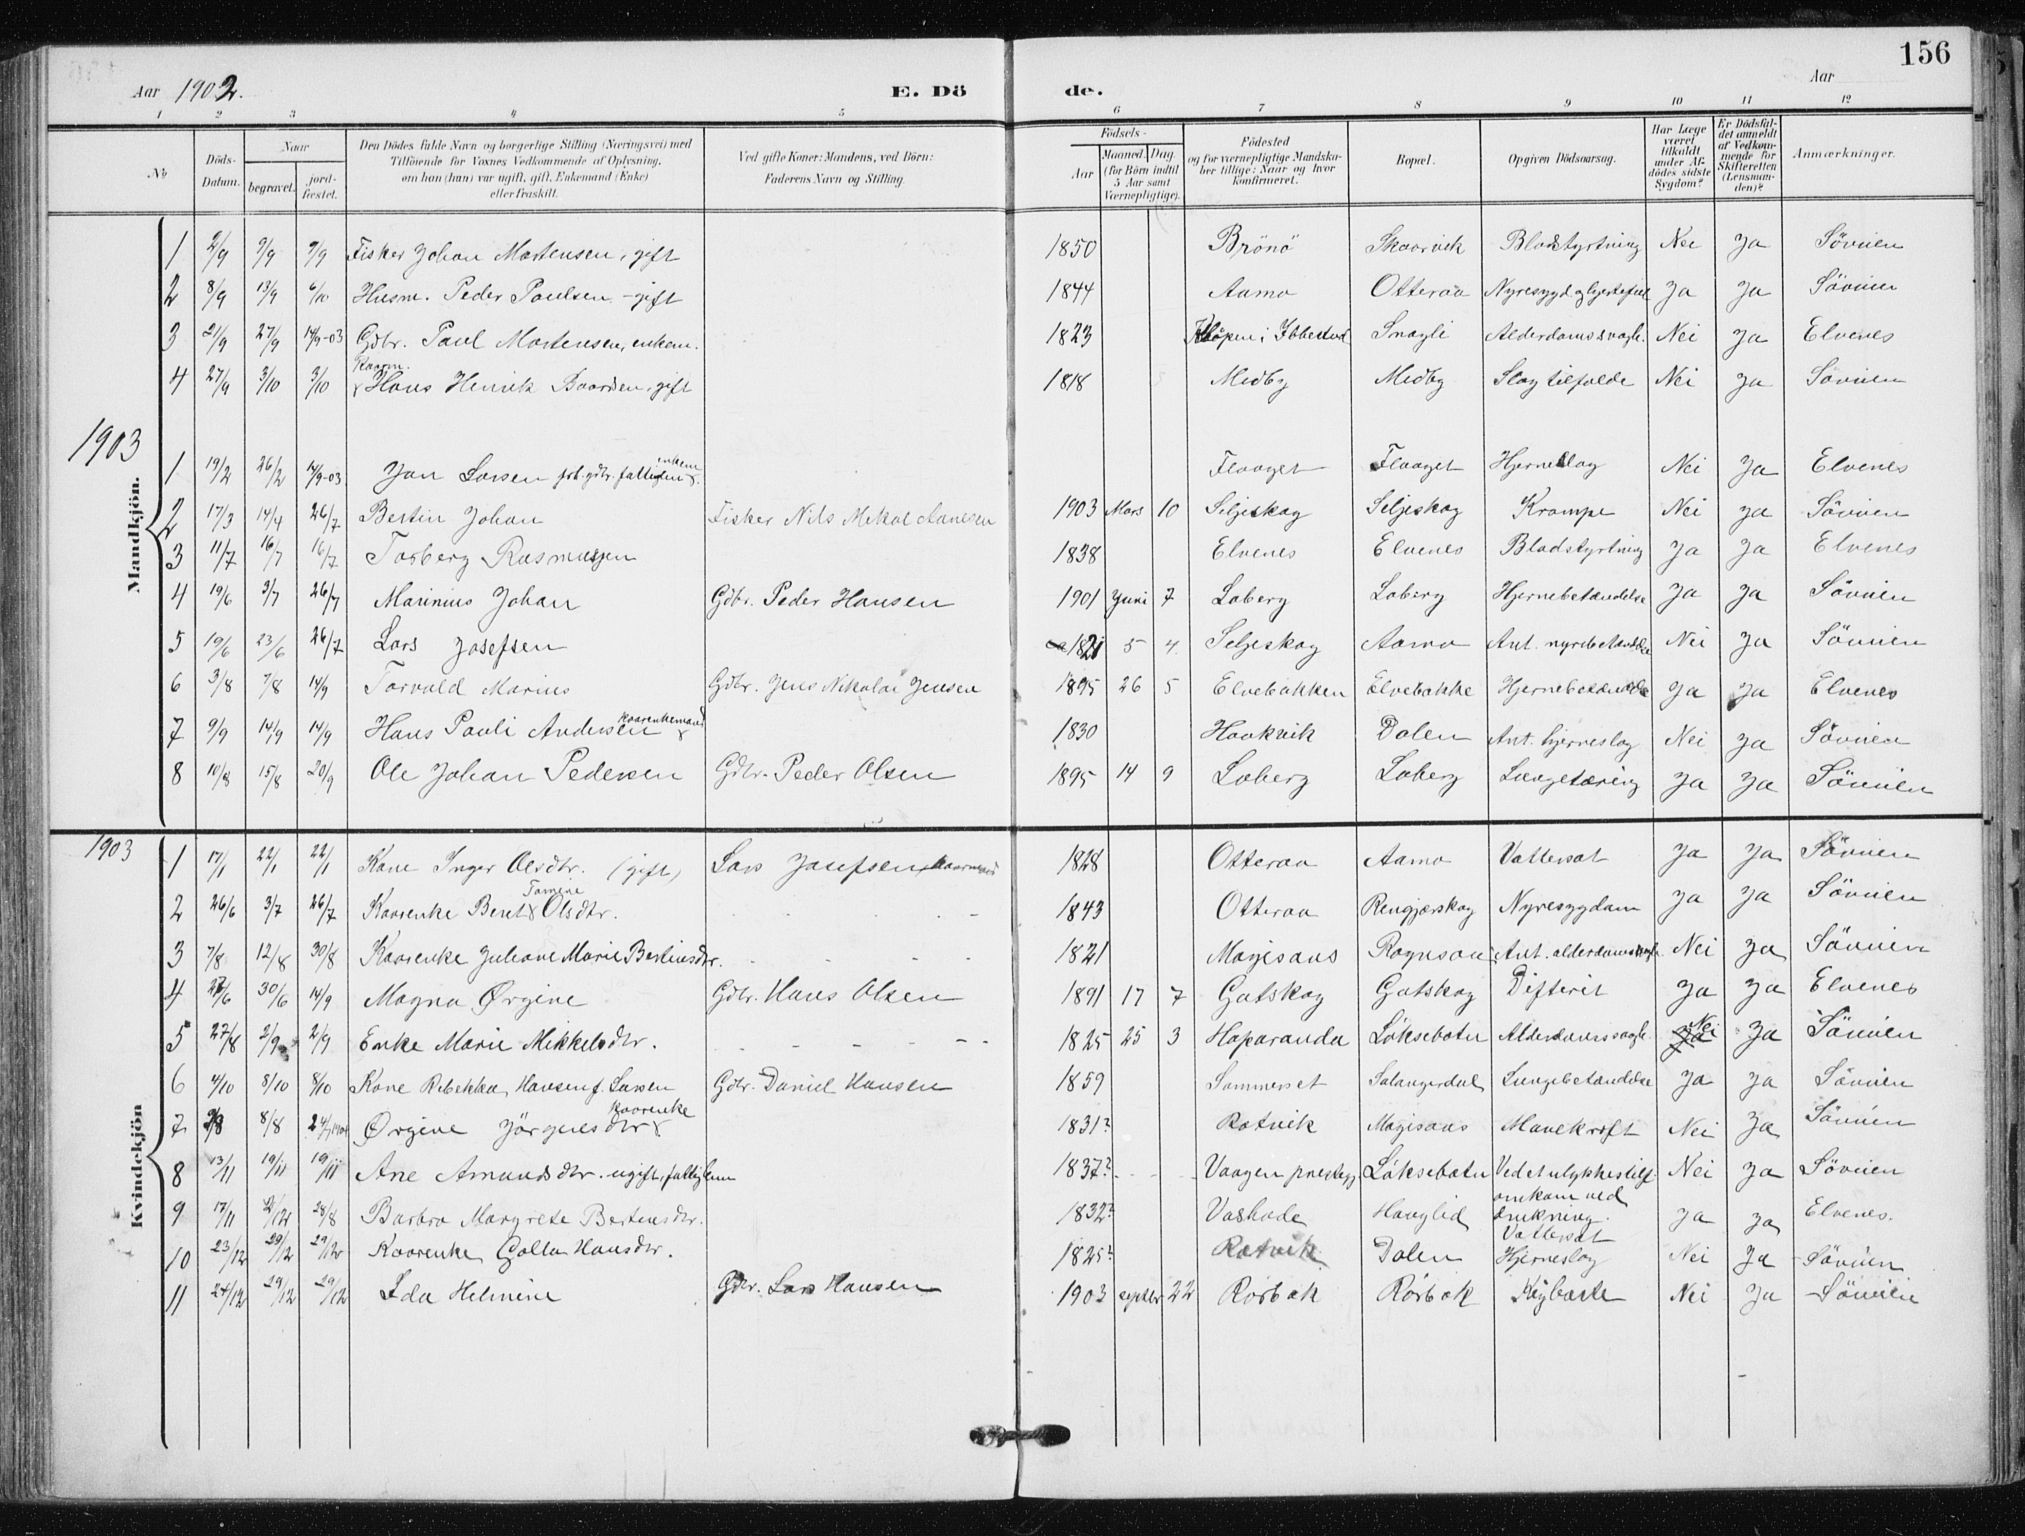 156
Aar 1902. E. Dö de. Aar
1 2 3 4 5 6 7 8 9 10 11 12
No
Döds-Datum.
Naar
begravet.
jord-fæstet.
Den Dödes fulde Navn og borgerlige Stilling (Næringsvei) med
Tilföiende for Voxnes Vedkommende af Oplysning,
om han (hun) var ugift, gift, Enkemand (Enke)
eller fraskilt.
Ved gifte Koner: Mandens, ved Börn:
Faderens Navn og Stilling.
Födsels-
Aar
Maaned. Dag.
(for Börn indtil
5 Aar samt
Værnepligtige).
Födested
og for værnepligtige Mandska-
ber tillige: Naar og hvor
konfirmeret.
Bopæl.
Opgiven Dödsaarsag.
Har Læge
været
tilkaldt
under Af-
dödes sidste
Sygdom?
Er Dödsfal-
det anmeldt
af Vedkom-
mende for
Skifteretten
(Lensman-
den)?
Anmærkninger.
Mandkjön.
1 2/9 9/9 9/9 Fisker Johan Mortensen, gift 1850 Brönö Skaarvik Blodstyrtning Nei Ja Söveien
2 8/9 13/9 6/10 Husm. Peder Paulsen - gift 1844 Aamo Otteraa Nyresygd. og hjertefeil Ja Ja Söveien
3 21/9 27/9 14/9-03 Gdbr. Paul Mortensen, enkem. 1823 i Ibbestad Smagli Alderdomssvagh. Nei Ja Elvenes
4 27/9 3/10 3/10 Kaarm. Hans Henrik Baardsen, gift 1818 Medby Medby Slagtilfælde Nei Ja Söveien
1903
1 19/2 26/2 14/9-03 Jon Larsen forh. gdbr. fattiglem enkem. Flaaget Flaaget Hjerneslag Nei Ja Elvenes
2 17/3 14/4 26/7 Bertin Johan Fisker Nils Mikal Aanesen 1903 Mars 10 Seljeskog Seljeskog Krampe Nei Ja Söveien
3 11/7 16/7 16/7 Torberg Rasmussen 1838 Elvenes Elvenes Blodstyrtning Ja Ja Elvenes
4 19/6 3/7 26/7 Marinius Johan Gdbr. Peder Hansen 1901 Juni 7 Loberg Loberg Hjernebetændelse Ja Ja Söveien
5 19/6 23/6 26/7 Lars Josefsen 1821 5 4 Seljeskog Aamo Ant. nyrebetændelse Nei Ja Söveien
6 3/8 7/8 14/9 Torvald Marius Gdbr. Jens Nikolai Jensen 1895 26 5 Elvebakken Elvebakke Hjernebetændelse Ja Ja Elvenes
7 9/9 14/9 14/9 Hans Pauli Andersen kaarenkemand 1830 Haakvik Dalen Ant. hjerneslag Nei Ja Söveien
8 10/8 15/8 20/9 Ole Johan Pedersen Gdbr. Peder Olsen 1895 14 9 Loberg Loberg Lungetæring Ja Ja Söveien
1903
Kvindekjön
1 17/1 22/1 22/1 Kone Inger Olsdtr. (gift) Lars Josefsen, kaarmand 1828 Otteraa Aamo Vattersot Ja Ja Söveien
2 26/6 3/7 26/7 Kaarenke Beret Tomine Olsdtr. 1843 Otteraa Rengjærskog Nyresygdom Ja Ja Söveien
3 7/8 12/8 30/8 Kaarenke Juliane Marie Bertinsdtr. 1821 Mojisaas Ant. alderdomssvagh. Nei Ja Söveien
4 30/6 14/9 Magna Ørgine Gdbr. Hans Olsen 1891 17 7 Gatskog Gatskog Difterit Ja Ja Elvenes
5 27/8 2/9 2/9 Enke Marie Mikkelsdtr. 1825 25 3 Haparanda Löksebotn Alderdomssvagh. Nei Ja Söveien
6 4/10 8/10 8/10 Kone Rebekka Hansen f. Larsen Gdbr. Daniel Hansen 1859 Sommerset Salangerdal Lungebetændelse Ja Ja Söveien
7 8/8 Ørgine Jörginesdtr. kaarenke 1831? Rotvik Mojisaas Mavekræft Nei Ja Söveien
8 13/11 19/11 19/11 Ane Amundsdtr. ugift, fattiglem 1837? Vaagen prestegj. Löksebotn Ved et ulykkestilf. omkom ved drukning. Nei Ja Söveien
9 17/11 2/12 28/8 Barbro Margrete Bertensdtr. 1832? Vashode Hauglid Vattersot Ja Ja Elvenes.
10 23/12 29/12 29/12 Kaarenke Golla Hansdtr. 1825? Rotvik Dalen Hjerneslag Nei Ja Söveien
11 24/12 29/12 29/12 Ida Helmine Gdbr. Lars Hansen 1903 septbr 22 Rörbak Rörbak Kighoste Nei Ja Söveien